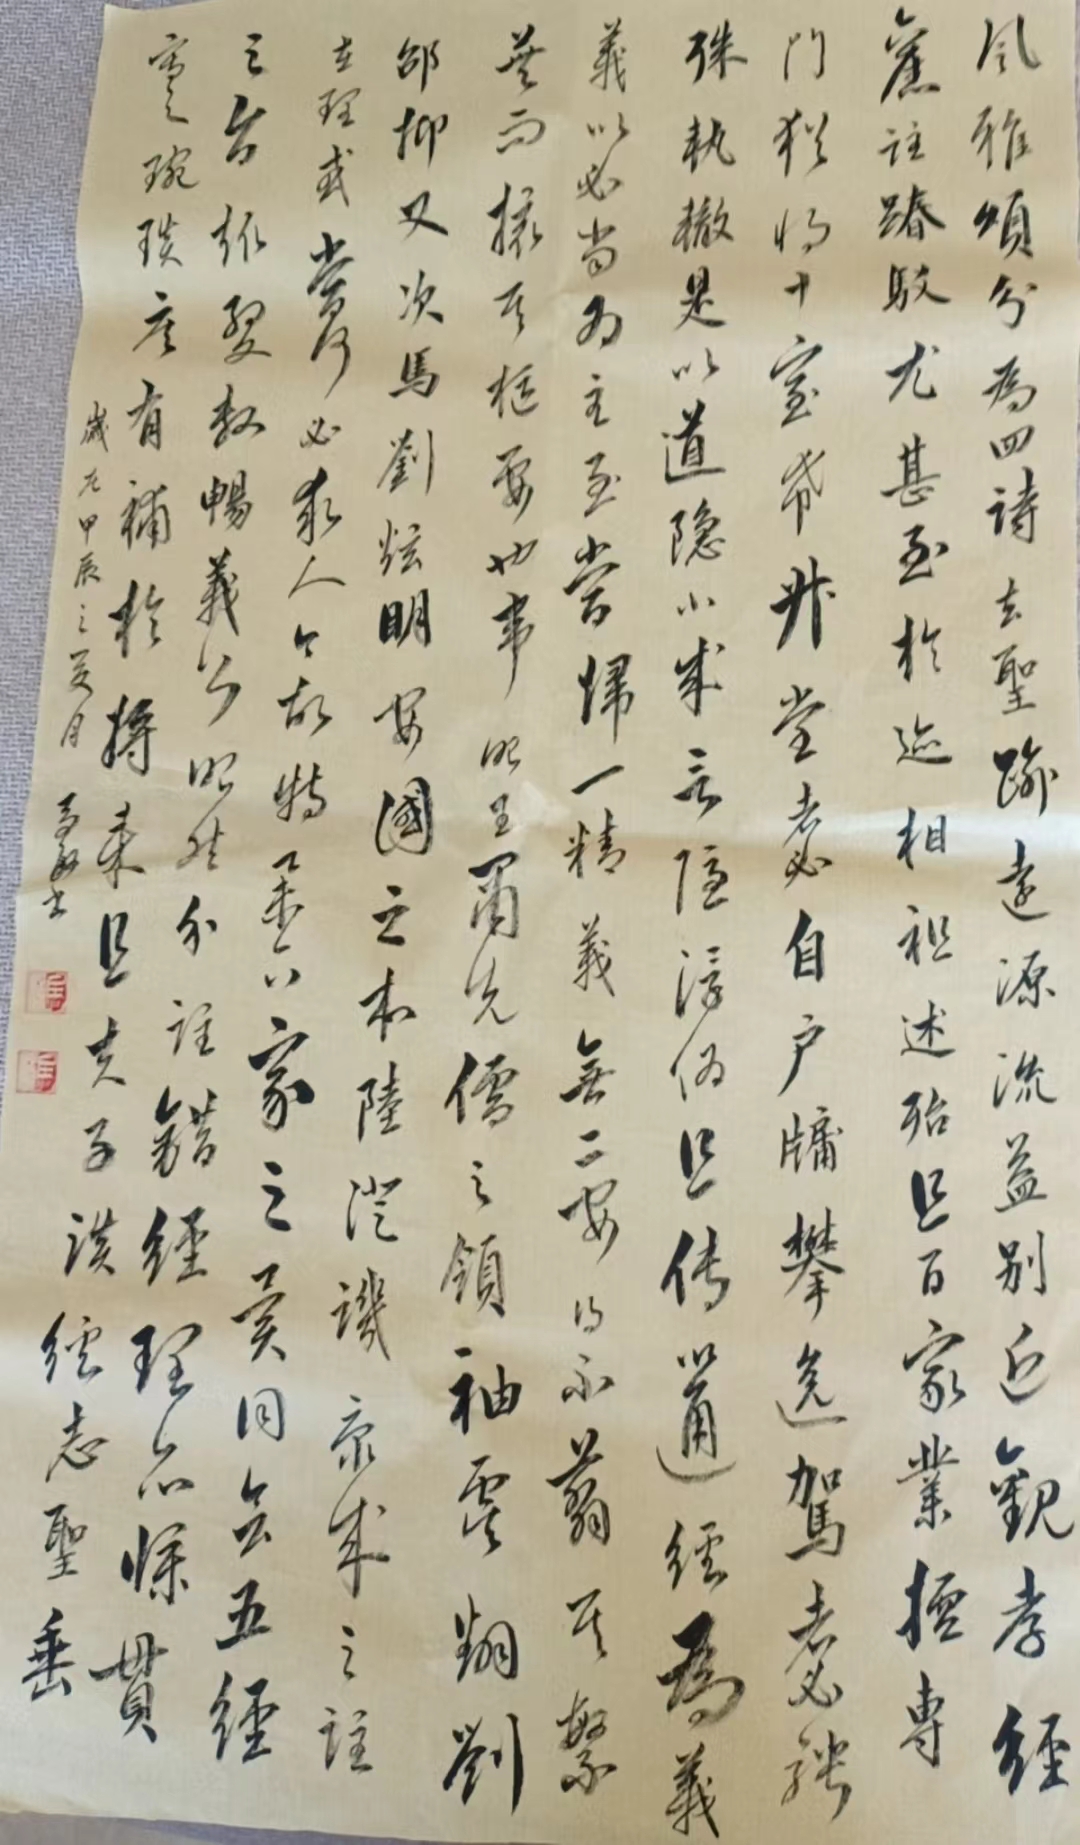 風雅頌分為四詩去聖逾遠源流益別近觀孝經
舊註踳駁尤甚至於跡相祖述殆且百家業擅專
門猶將十室希升堂者必自戶牖攀逸駕者必騁
殊執轍是以道隐小成言隱浮偽且传以通經為義
義以必當为主至當歸一精義無二安得不翦其繁
蕪而撮其樞要也韋昭王肅先儒之領袖虞翻劉
邵抑又次焉劉炫明安國之本陸澄譏康成之註
在理或當何必求人今故特舉六家之異同會五經
之旨趣約文敷暢義則昭然分註錯經理亦條貫
寫之琬琰庶有補於將來且夫子談經志聖垂
歲在甲辰之夏月